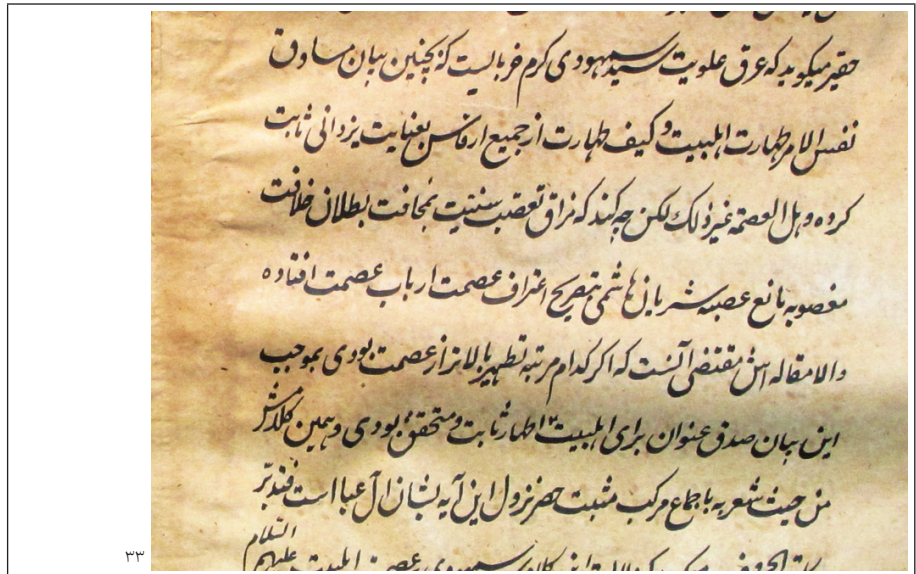 حقیر میگوید که عرق علویت سید سمهودی کرم فرمالیست که بچنین بیان مساوق
نفس الامر طهارت اهلبیت و کیف طهارت از جمیع ارجاس بعنایت یزدانی ثابت
کرده و هل العصمة غیر ذلک لکن چه کند که مراق تعصب سنیت بمخافت بطلان خلافت
مغصوبه مانع عصبه شریان هاشمی بتصریح اعتراف عصمت ارباب عصمت افتاده
والا مقاله اش مقتضی آنست که اگر کدام مرتبه تطهیر بالاتر از عصمت بودی بموجب
این بیان صدق عنوان برای اهلبیت اطهار ثابت و متحقق بودی و همین کلامش
من حیث شعر به باجماع مرکب مثبت حصر نزول این آیه بشان آل عبا است فتدبر
السلام
علیهم
٣٣